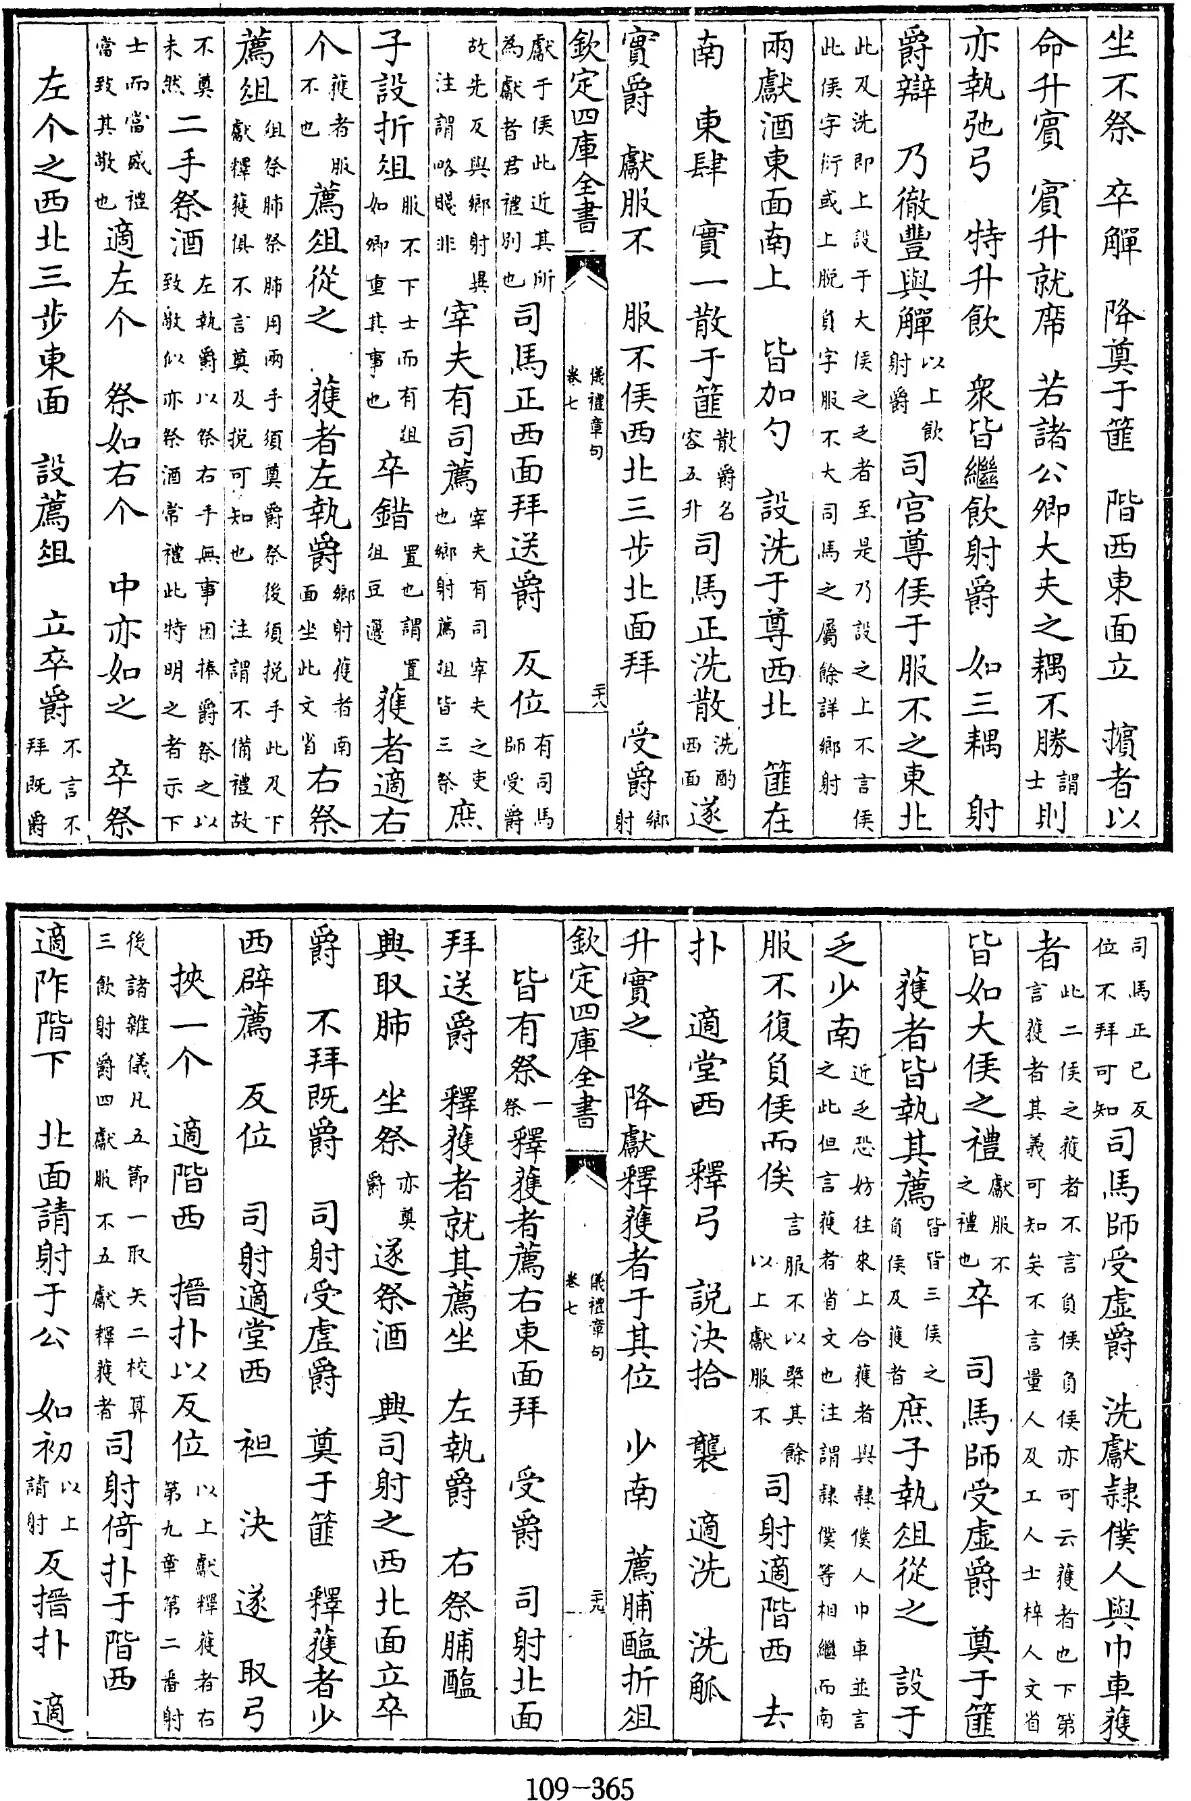 坐不祭　卒觶　降奠于篚　階西東面立　擯者以
命升賓　賓升就席　若諸公卿大夫之耦不勝謂士則
亦執弛弓　特升飲　衆皆繼飲射爵　如三耦　射
爵辯　乃徹豐與觶以上飲射爵司宫尊侯于服不之東北
此及洗即上設于大侯之乏者至是乃設之上不言侯此侯字衍或上脱負字服不大司馬之屬餘詳鄉射
兩獻酒東面南上　皆加勺　設洗于尊西北　篚在
南　東肆　實一散于篚散爵名容五升司馬正洗散洗酌西面遂
實爵　獻服不　服不侯西北三步北面拜　受爵鄉射
欽定四庫全書　儀禮章句卷七　二十八
獻于侯此近其所為獻者君禮别也司馬正西面拜送爵　反位有司馬師受爵
故先反與鄉射異注謂略賤非宰夫有司薦宰夫有司宰夫之吏也鄉射薦俎皆三祭庶
子設折俎服不下士而有俎如卿重其事也卒錯置也謂置俎豆籩獲者適右
个獲者服不也薦俎從之　獲者左執爵鄉射獲者南面坐此文省右祭
薦俎俎祭肺祭肺用兩手須奠爵祭後須挩手此及下獻釋獲俱不言奠及挩可知也　注謂不備禮故
不奠未然二手祭酒左執爵以祭右手無事因捧爵祭之以致敬似亦祭酒常禮此特明之者示下
士而當盛禮當致其敬也適左个　祭如右个　中亦如之　卒祭
左个之西北三步東面　設薦俎　立卒爵不言不拜既爵
司馬正已反位不拜可知司馬師受虚爵　洗獻隸僕人與巾車獲
者此二侯之獲者不言負侯負侯亦可云獲者也下第言獲者其義可知矣不言量人及工人士梓人文省
皆如大侯之禮獻服不之禮也卒　司馬師受虚爵　奠于篚
獲者皆執其薦皆皆三侯之負侯及獲者庶子執俎從之　設于
乏少南近乏恐妨往來上合獲者與隸僕人巾車並言之此但言獲者省文也注謂隸僕等相繼而南
服不復負侯而俟言服不以槩其餘以上獻服不司射適階西　去
扑　適堂西　釋弓　說決拾　襲　適洗　洗觚
升實之　降獻釋獲者于其位　少南　薦脯醢折俎
欽定四庫全書　儀禮章句卷七　二十九
皆有祭一祭釋獲者薦右東面拜　受爵　司射北面
拜送爵　釋獲者就其薦坐　左執爵　右祭脯醢
興取肺　坐祭亦奠爵遂祭酒　興司射之西北面立卒
爵　不拜既爵　司射受虚爵　奠于篚　釋獲者少
西辟薦　反位　司射適堂西　袒　決　遂　取弓
挾一个　適階西　搢扑以反位以上獻釋獲者右第九章第二番射
後諸雜儀凡五節一取矢二校算三飲射爵四獻服不五獻釋獲者司射倚扑于階西
適阼階下　北面請射于公　如初以上請射反搢扑　適
109-365